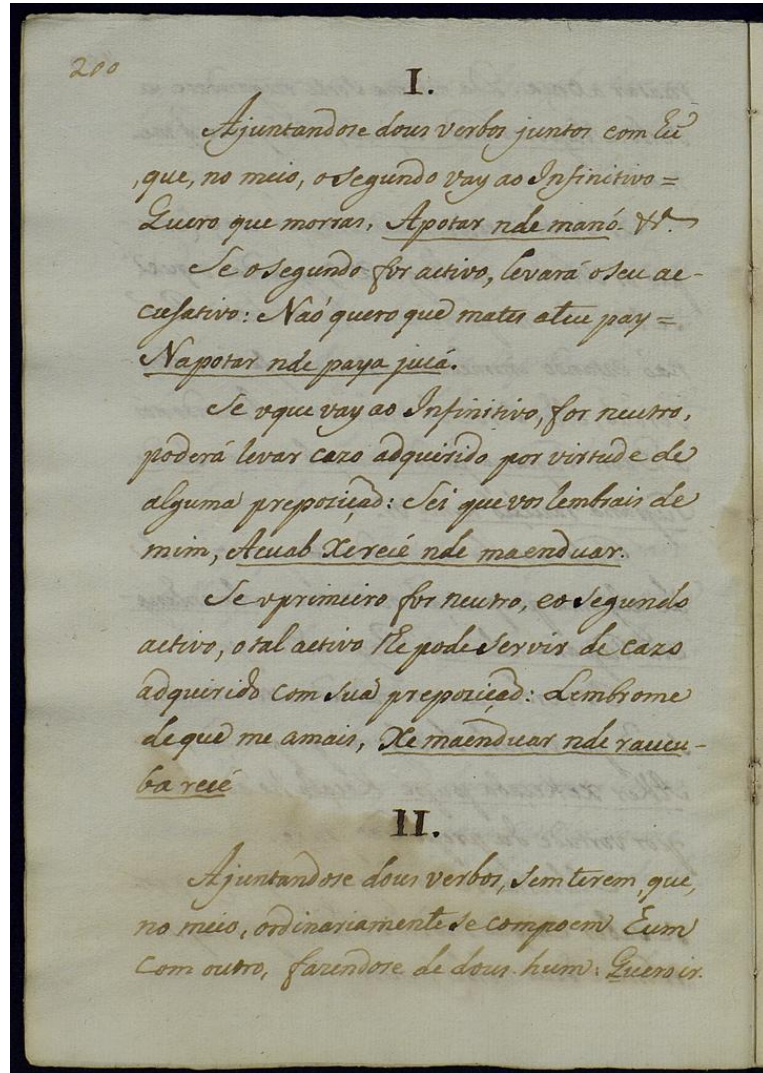 200
I.
Ajuntandose dous verbos juntos com hũ
, que, no meio, o segundo vay ao Infinitivo=
Quero que morras, Apotar nde manó. &ª.
Se o segundo for activo, levará o seu ac-
cusativo: Naõ quero que mates a teu pay=
Napotar nde paya jucá.
Se o que vay ao Infinitivo, for neutro,
poderá levar cazo adquirido por virtude de
alguma preposiçaõ: Sei que vos lembrais de
mim, Acuab Xerecé nde maenduar.
Se o primeiro for neutro, e o segundo
activo, o tal activo lhe pode servir de cazo
adquirido com sua preposiçaõ: Lembrome
de que me amais, Xe maenduar nde rauçu-
ba recé
II.
Ajuntandose dous verbos, sem terem, que,
no meio, ordinariamente se compoem hum
com outro, fazendose de dous hum: Quero ir.